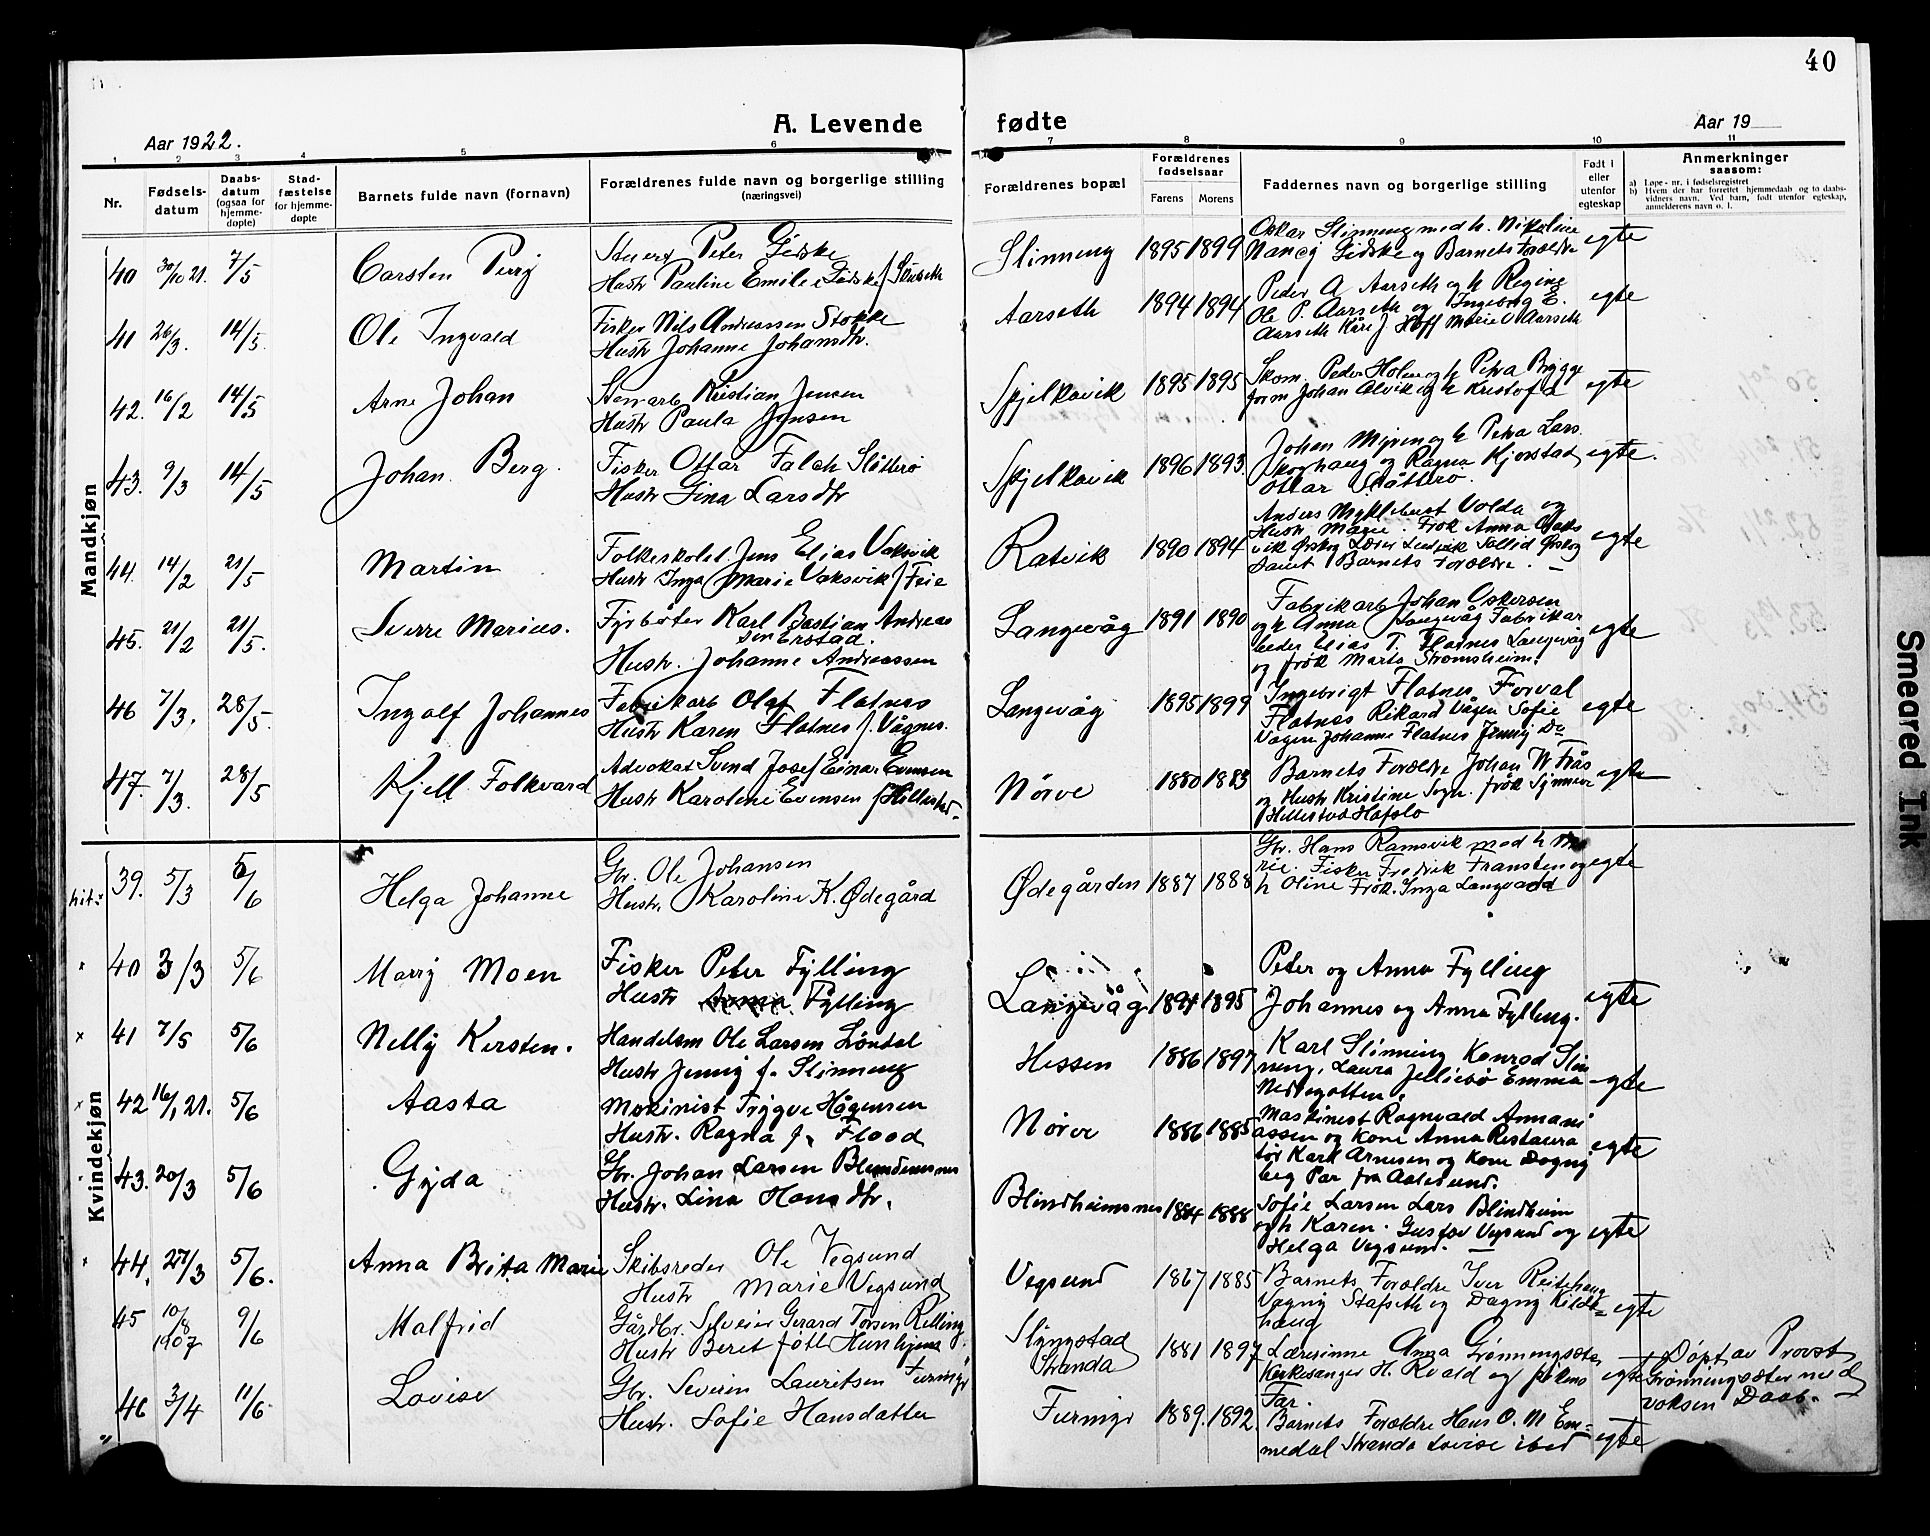 40
A. Levende fødte
Aar 1922.
Aar 19
1 2 3 4 5 6 7 8 9 10 11
Nr.
Fødsels-
datum
Daabs-
datum
(ogsaa for
hjemme-
døpte)
Stad-
fæstelse
for hjemme-
døpte
Barnets fulde navn (fornavn)
Forældrenes fulde navn og borgerlige stilling
(næringsvei)
Forældrenes bopæl
Forældrenes
fødselsaar
Farens Morens
Faddernes navn og borgerlige stilling
Født i
eller
utenfor
egteskap
Anmerkninger
saasom:
a) Løpe-nr. i fødselsregistret
b) Hvem der har forrettet hjemmedaab og to daabs-
vidners navn. Ved barn, født utenfor egteskap,
anmelderens navn o. l.
Mandkjøn
40 30/10 21. 7/5 Carsten Perry
Stuert Peter Gidske
Hustr Pauline Emilie Gidske f.
Slinneng 1895 1899
Oskar Slinneng med h. Nikoline
Nancy Gidske og Barnets Forældre
egte
41 26/3. 14/5. Ole Ingvald
Fisker Nils Andreassen Stokke
Hustr Johanne Johansdtr.
Aarseth 1894 1894
Peder A Aarseth og h Regine
Ole P. Aarseth og Ingeborg E.
Aarseth Kåre J Hoff Marie Aarseth
egte
42. 16/2 14/5 Arne Johan
Stenarb Kristian Jensen
Hustr Paula Jensen
Spjelkavik 1895 1895
Skom. Peder Holm og h Petra Brygge
form Johan Alvik og h Kristofa
egte
43. 9/3 14/5 Johan Berg.
Fisker Ottar Falch Slåtterø
Hustr Gina Larsdtr
Spjelkavik 1896 1893.
Johan Myren og h Petra Lars
Skorhaug og Ragna Kjorstad
Ottar Slåtterø.
egte.
44. 14/2 21/5 Martin
Folkeskolel Jens Elias Vaksvik
Hustr Inga Marie Vaksvik f Feie
Ratvik 1890 1894
Anders Myklebust Volda og
Hustr Marie. Frøk Anna Vaks
vik Ørskog Lærer Ludvik Sollid Ørskog
samt Barnets Forældre.
egte
45. 21/2 21/5. Sverre Marius.
Fyrbøter Karl Bastian Andreas
sen Erstad.
Hustr. Johanne Andreassen
Langevåg 1891 1890
Fabrikarb Johan Oskersen
og h Anna Langevåg Fabrikar
beder Elias T. Flatnes Langevåg
og frøk Marta Strømsheim.
egte
46 7/3. 28/5. Ingolf Johannes
Fabrikarb Olaf Flatnes
Hustr Karen Flatnes f. Vågnes.
Langevåg 1895 1899
Ingebrigt Flatnes Torval
Flatnes Rikard Vågen Sofie
Vågen Johanne Flatnes Jenny Do
egte
47. 7/3. 28/5 Kjell Folkvard
Advokat Svend Josef Einar Evensen
Hustr Karoline Evensen f Hillestad.
Nørve 1880 1883
Barnets Forældre Johan W Frås
og Hustr Kristine Sogn. frøk Synneve
Hillestad Hafslo
egte
Kvindekjøn
hit:
39. 5/3 5/6 Helga Johanne
Gbr. Ole Johansen
Hustr. Karoline K. Ødegård
Ødegården 1887 1888
Gbr. Hans Ramsvik med h Ma
rie. Fisker Fredrik Fransten og
h Oline Frøk. Inga Langvad
egte
40 3/3 5/6 Marry Moen
Fisker Peter Fylling
Hustr Anna Fylling
Langevåg 1894 1895
Peter og Anna Fylling
Johannes og Anna Fylling.
egte
x 41 7/5 5/6 Nelly Kersten.
Handelsm Ole Larsen Løndal
Hustr Jenny f. Slinneng
Hessen 1886 1897
Karl Slinning Konrad Slin
ning, Laura Emma
egte
x 42 16/1 21. 5/6 Aasta
Maskinist Trygve Hågensen
Hustr. Ragna f. Flood
Nørve 1886 1885
Maskinest Ragnvald Annani
assen og Kone Anna Restaura
tør Karl Arnesen og Kone Dagny
beg Par fra Aalesund.
egte
43. 20/3 5/6 Gyda
Gbr. Johan Larsen Blindheimsnes
Hustr. Lina Hansdtr.
Blindheimsnes 1884 1888
Sofie Larsen Lars Blindheim
og h Karen. Gustav Vegsund og
Helga Vegsund.
egte
x 44. 27/3 5/6. Anna Brita Marie
Skibsreder Ole Vegsund
Hustr Marie Vegsund
Vegsund 1867 1885
Barnets Forældre Iver Reitehaug
Vagny Stafseth og Dagny Kildt=
haug
egte
45 10/8 1907 9/6 Malfrid
Gårdbr. Sylveier Gerard Torsen Relling
Hustr Beret
Slyngstad
Stranda
1881 1897
Lærerinne Anna Grønningsæter
Kirkesanger H. Rvald og pikens
Far.
egte
Døpt av Provst
Grønningsæter med
voksen Daab.
46 3/4 11/6. Lovise
Gbr. Severin Lauritsen Furmyr
Hustr. Sofie Hansdatter
Furmyr 1889. 1892.
Barnets Forældre Hans O. M Em=
medal Stranda Lovise ibid
egte
Smeared Ink